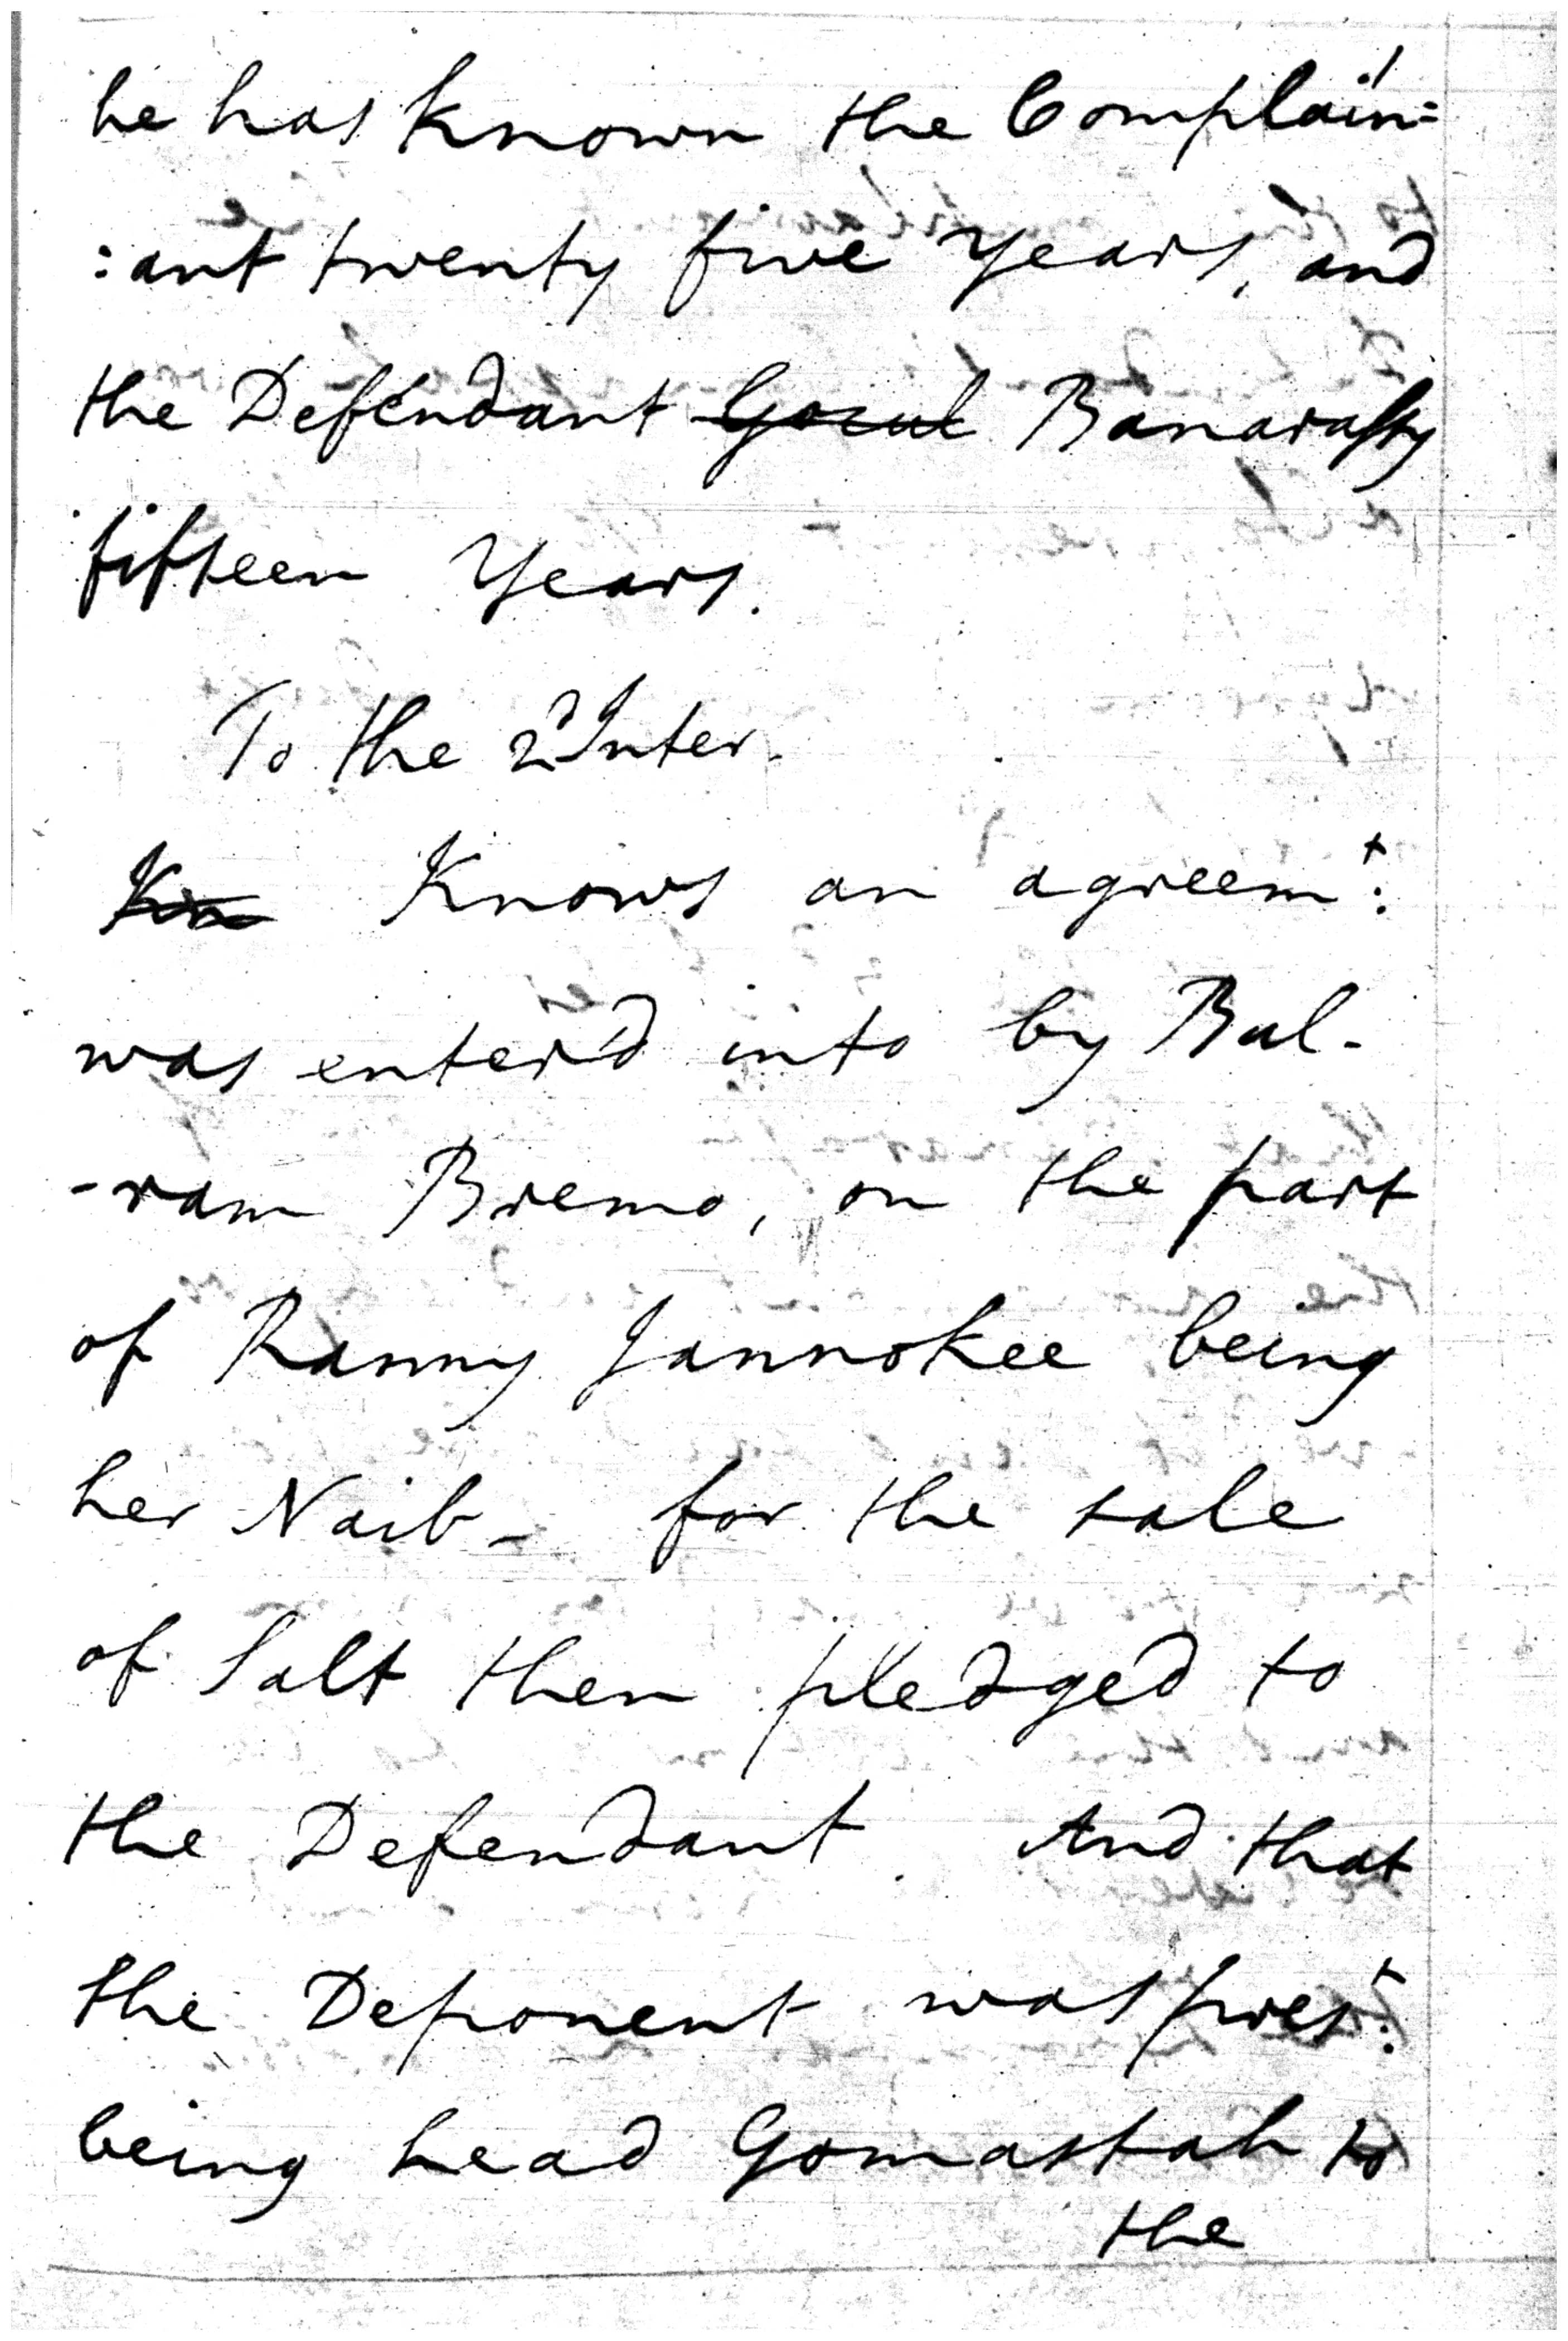 he has known the Complain=
:ant twenty five Years, and
the Defendant Gocul Banarassy
fifteen Years.
To the 2d Inter.
Kn Knows an agreemt:
was enter'd into by Bul-
-ram Bremo, on the part
of Ranny Jannokee being
her Naib - for the sale
of Salt then pledged to
the Defendant. And that
the Deponent was prest:
being head Gomastah to
the